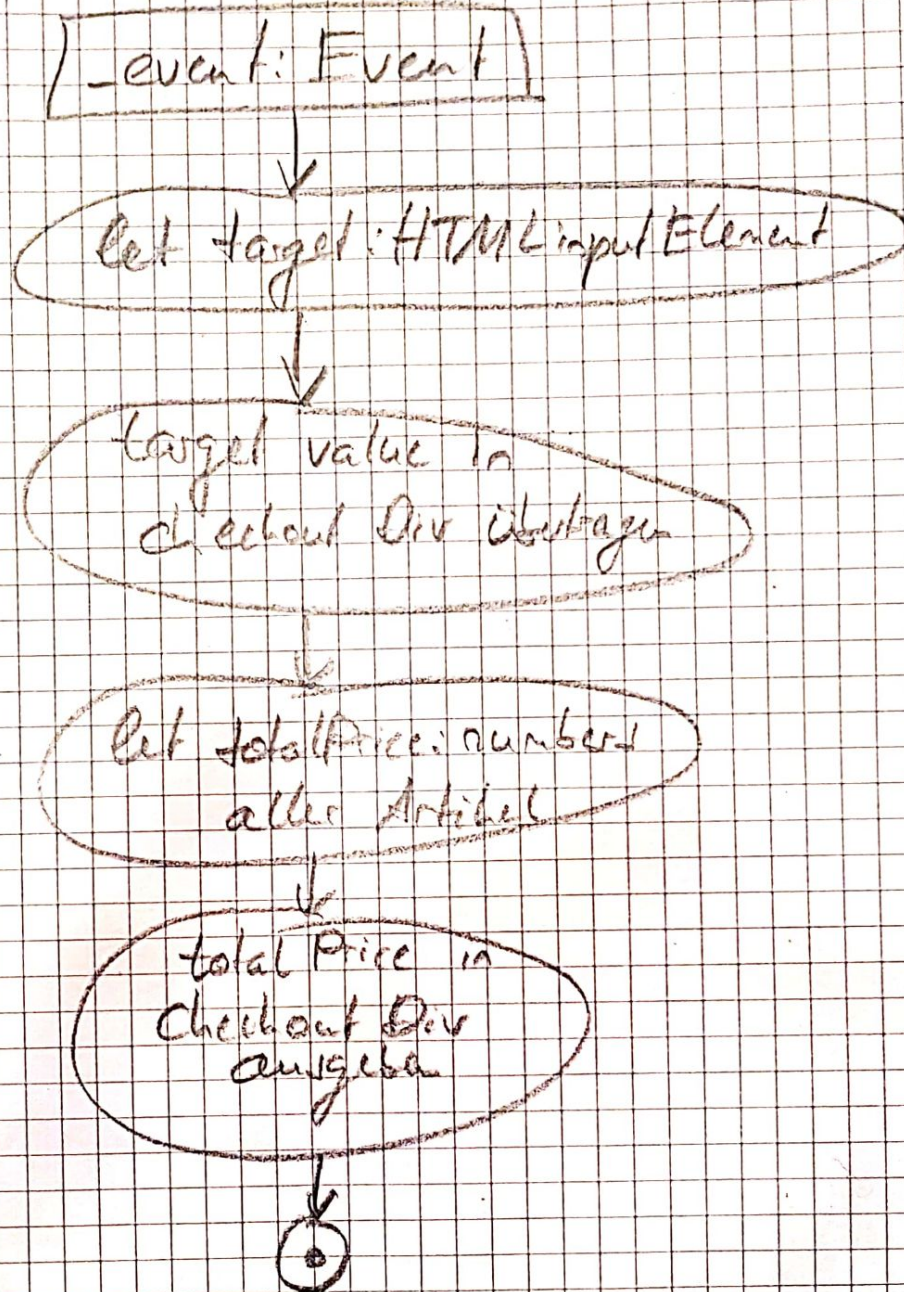 _event: Event
let target: HTMLinputElement
target value in
checkout Div übertragen
let totalPrice: number
aller Artikel
total Price in
Checkout Div
ausgeben